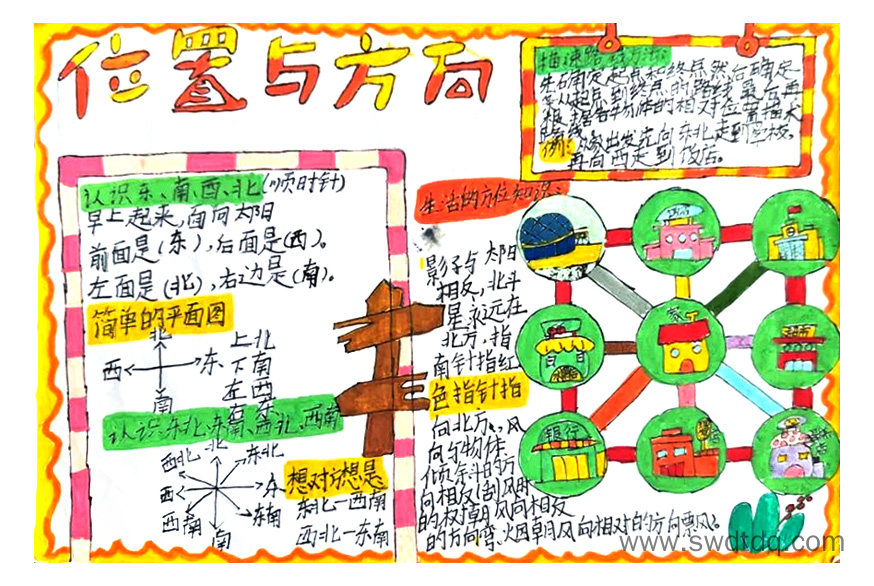 位置与方向
描述路线方法:
先确定起点和终点然后确定
从起点到终点的路线最后再
根据各物体的相对位置描大
路线
例:从家出发先向东北走到学校。
再向西走到饭店。
认识东、南、西、北(顺时针)
早上起来,面向太阳
前面是(东),后面是(西)。
左面是(北),右边是(南)。
简单的平面图
北
西
东
南
上北
下南
左西
右东
认识东北、东南、西北、西南
北
西北
东北
西
东
西南
东南
南
想对方想是
东北—西南
西北—东南
生活的方位知识:
影子与太阳
相反,北斗
星永远在
北方,指
南针指红
色指针指
向北方、风
向与物体
倾斜的方
向相反(刮风时
的树朝风向相反
的方向弯、烟朝风向相对的方向飘风。
家
银行
www.swdtdq.com